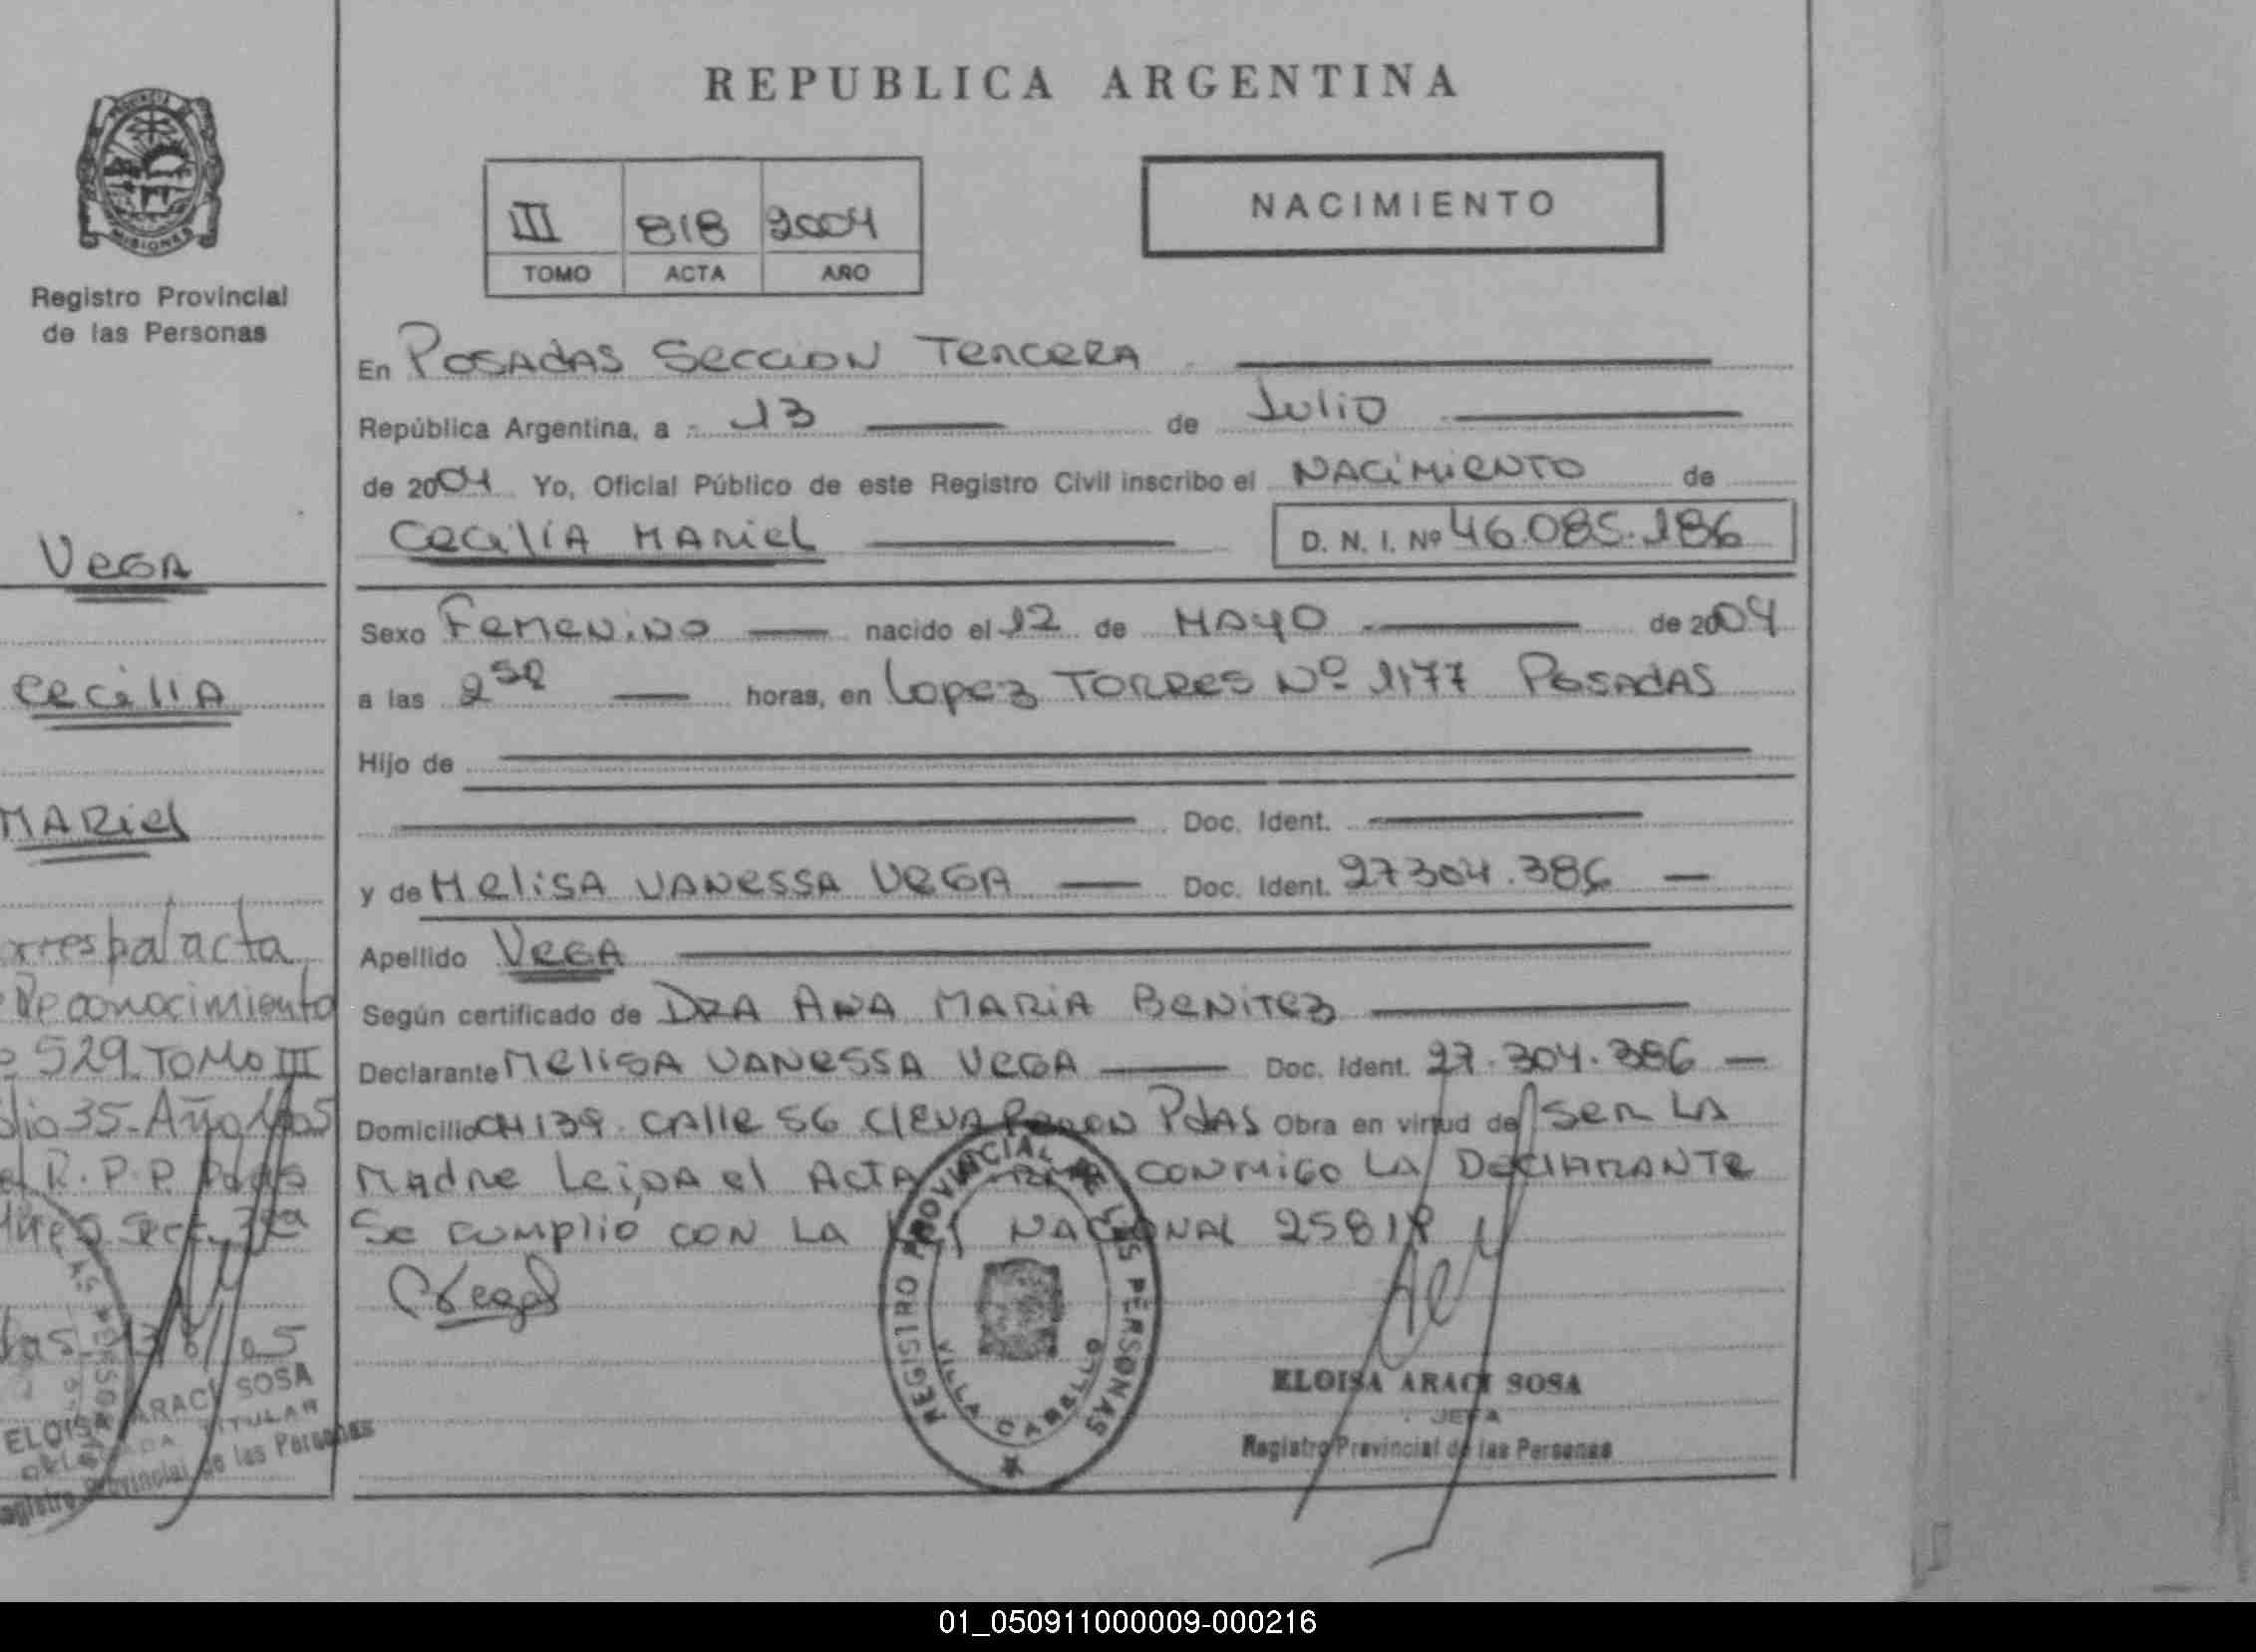 REPUBLICA ARGENTINA
PROVINCIA DE
MISIONES
Registro Provincial
de las Personas
NACIMIENTO
III 818 2004
TOMO ACTA AÑO
En POSADAS SECCION TERCERA
República Argentina, a 13 de Julio
de 2004 Yo, Oficial Público de este Registro Civil inscribo el NACIMIENTO de
CECILIA MARIEL D. N. I. Nº 46.085.186
Sexo FEMENINO nacido el 12 de MAYO de 2004
a las 2 horas, en Lopez TORRES Nº 1177 POSADAS
Hijo de
Doc. Ident.
y de MELISA VANESSA VEGA Doc. Ident. 27304.386
Apellido VEGA
Según certificado de DRA ANA MARIA BENITEZ
Declarante MELISA VANESSA VEGA Doc. Ident. 27.304.386
Domicilio CH 139 CALLE 56 C/EVA PERON PDAS Obra en virtud de SER LA
MADRE LEIDA el ACTA CONMIGO LA DECLARANTE
Se cumplió CON LA LEY NACIONAL 25819
REGISTRO PROVINCIAL DE LAS PERSONAS
VILLA CABELLO
ELOISA ARACI SOSA
JEFA
Registro Provincial de las Personas
VEGA
CECILIA
MARIEL
acta
Reconocimiento
529 TOMO III
35-Año
R.P.P. Pdas
ELOISA ARACI SOSA
TITULAR
Registro Provincial de las Personas
01_050911000009-000216